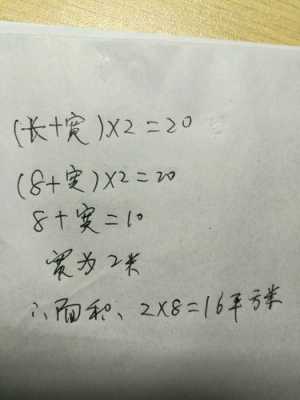 (长+宽)×2=20
(8+宽)×2=20
8+宽=10
宽为2米
∴面积、2×8=16平方米